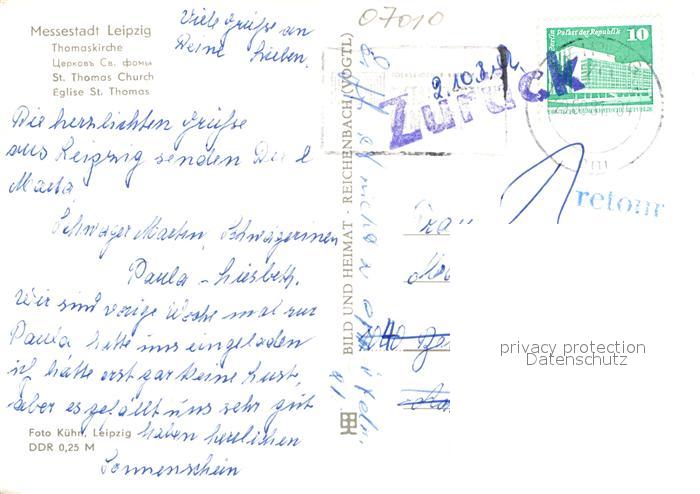 Messestadt Leipzig
Thomaskirche
Церковь Св. фомы
St. Thomas Church
Eglise St. Thomas
Viele Grüße an
Deine Lieben.
07010
Die herzlichsten Grüße
aus Leipzig senden Dir l
Marta
Schwager Martin, Schwägerinnen
Paula - Liesbeth.
Wir sind vorige Woche mal zur
Paula hatte uns eingeladen
ich hätte erst gar keine Lust,
aber es gefällt uns sehr gut
haben herrlichen
Sonnenschein
Foto Kühn, Leipzig
DDR 0,25 M
BILD UND HEIMAT · REICHENBACH (VOGTL)
Berlin Palast der Republik
10
Zurück
retour
Frau
privacy protection
Datenschutz